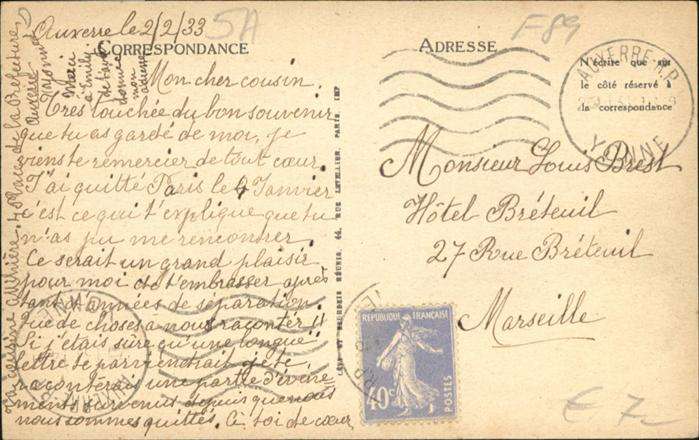 Auxerre le 2/2/33
5A
F 89
CORRESPONDANCE
ADRESSE
N'écrire que sur
le côté réservé à
la correspondance
AUXERRE R.P.
YONNE
Mon cher cousin.
Très touchée du bon souvenir
que tu as gardé de moi, je
viens te remercier de tout cœur.
J'ai quitté Paris le 4 Janvier
c'est ce qui t'explique que tu
n'as pu me rencontrer.
Ce serait un grand plaisir
pour moi de t'embrasser après
tant d'années de séparation
que de choses à nous raconter !!
Si j'étais sûre qu'une longue
lettre te parviendrait je te
raconterais une partie d'évène
ments survenus depuis que nous
nous sommes quittés. A toi de cœur
Ta cousine
de la Préfecture
Auxerre
Merci
à Emile
de t'avoir
donné
mon
adresse
Monsieur Louis Brest
Hôtel Bréteuil
27 Rue Bréteuil
Marseille
RÉUNIS, 44, RUE LETELLIER, PARIS, IMP
REPUBLIQUE FRANÇAISE
40c
POSTES
€ 7